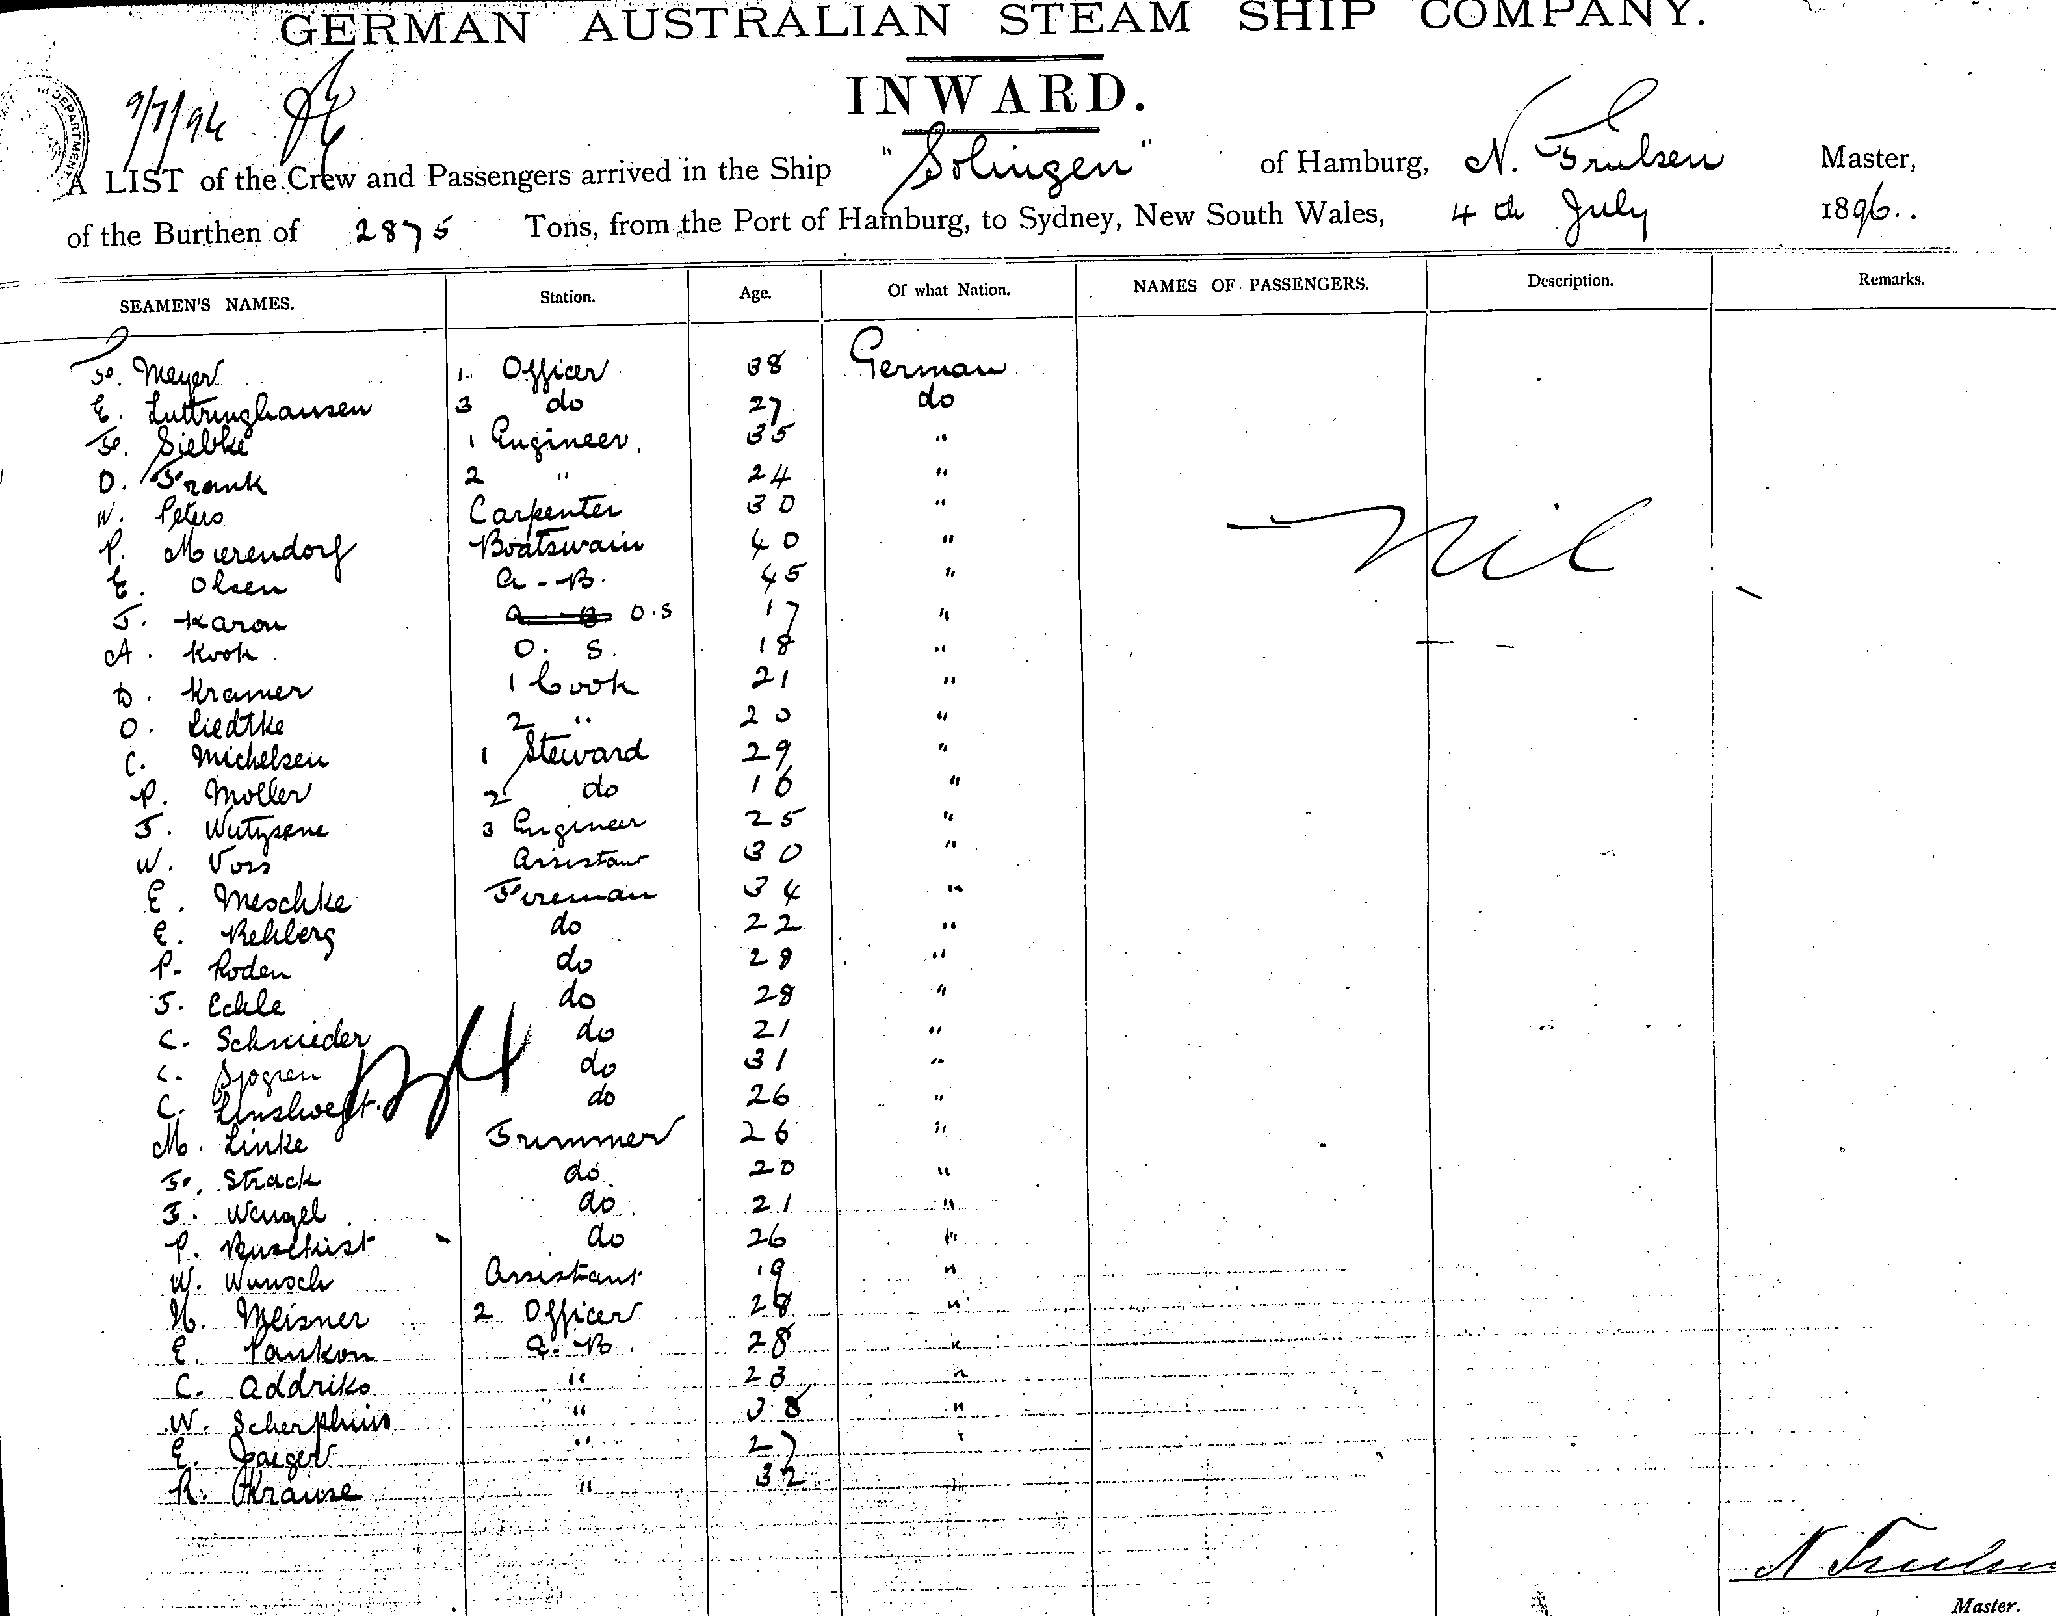 GERMAN AUSTRALIAN STEAM SHIP COMPANY.
INWARD.
9/7/96
A LIST of the Crew and Passengers arrived in the Ship "Solingen" of Hamburg, N. Frulsen Master,
of the Burthen of 2875 Tons, from the Port of Hamburg, to Sydney, New South Wales, 4th July 1896..
SEAMEN'S NAMES. Station. Age. Of what Nation. NAMES OF PASSENGERS. Description. Remarks.
F. Meyer 1. Officer 38 German
E. Luttringhausen 3 do 27 do
F. Siebke 1 Engineer. 35 "
O. Frank 2 " 24 "
W. Peters Carpenter 30 "
Nil
P. Mierendorf Boatswain 40 "
E. Olsen A-B. 45 "
J. Karou O.S 17 "
A. Kook O. S. 18 "
D. Kramer 1 Cook 21 "
O. Liedtke 2 " 20 "
C. Michelsen 1 Steward 29 "
P. Moller 2 do 16 "
J. 3 Engineer 25 "
W. Voss Assistant 30 "
E. Meschke Fireman 34 "
E. Rehberg do 22 "
P. Roden do 28 "
J. Eckle do 28 "
C. Schnieder do 21 "
C. Sjogren do 31 "
C. do 26 "
34
M. Linke Trimmer 26 "
F. Strack do. 20 "
F. Wengel do. 21 "
P. Buschkist do 26 "
W. Wunsch Assistant 19 "
H. Meisner 2 Officer 28 "
E. Pankon A.B. 28 "
C. Addriks " 23 "
W. Scherphuis " 38 "
E. Jaeger " 27 "
R. Krause " 32 "
N Frulsen
Master.